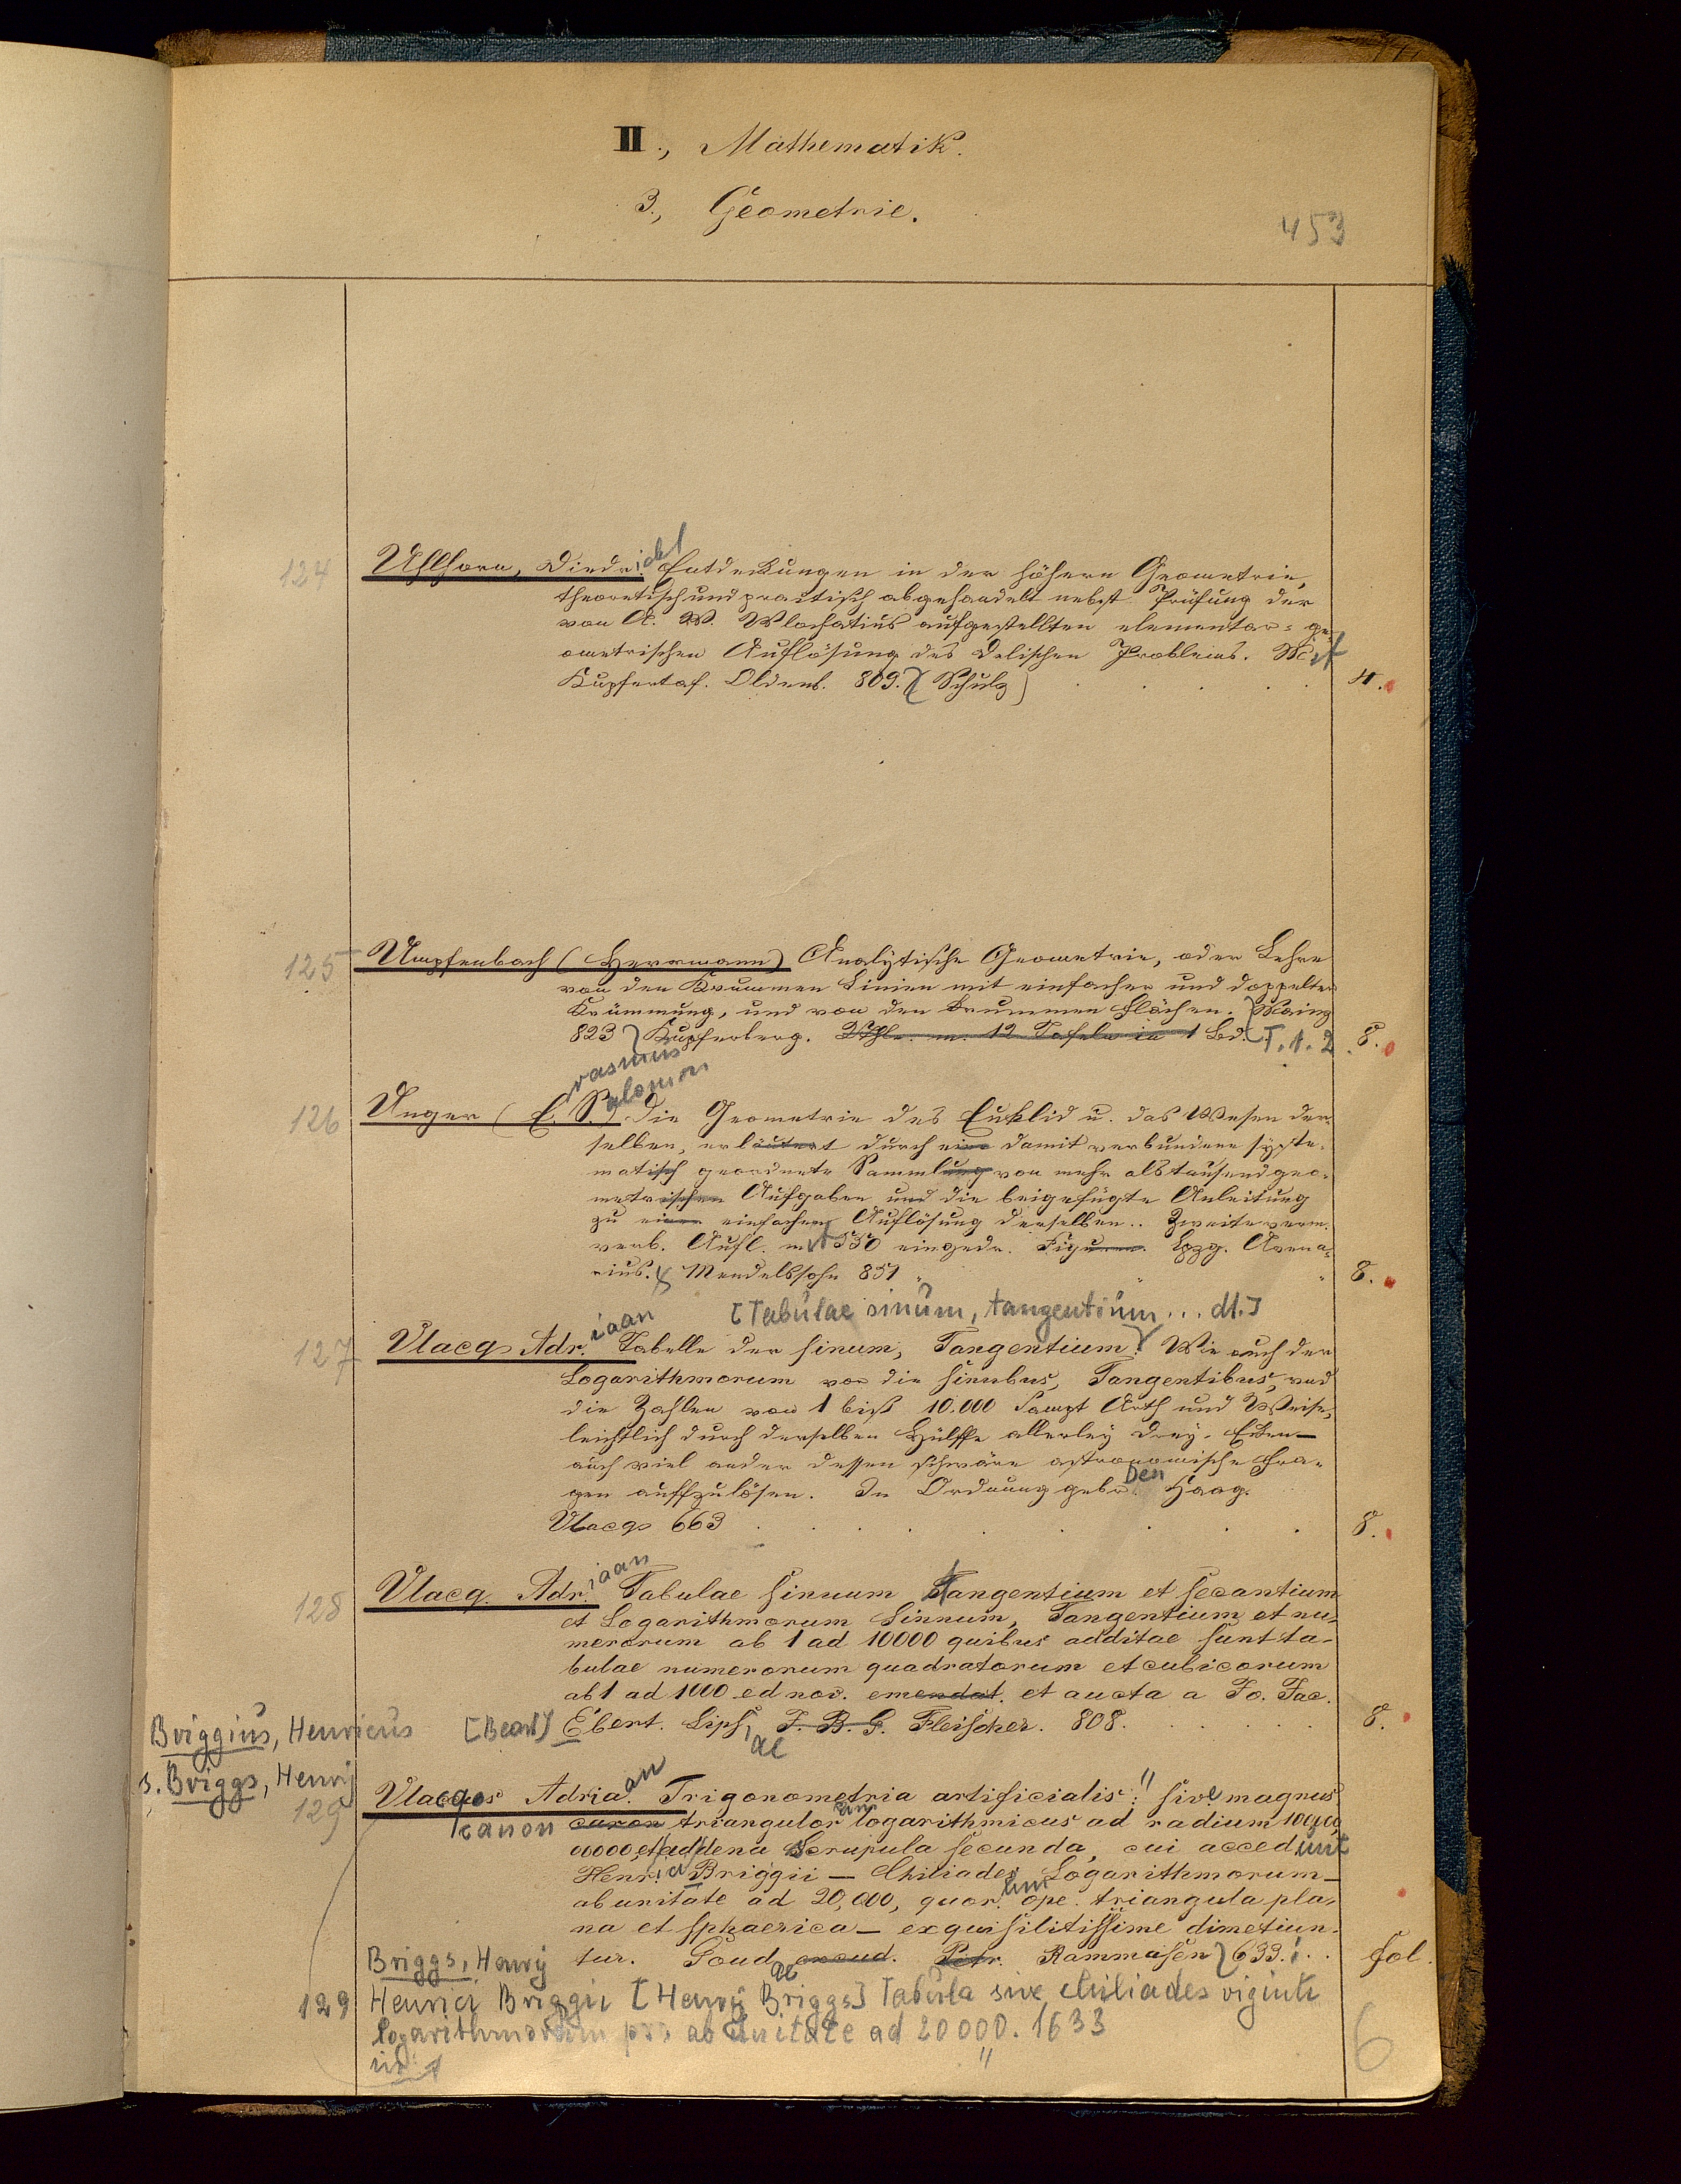 II., Mathematik.
3., Geometrie.
453
124 Uhlhorn, Diedr.ich Entdeckungen in der höhern Geometrie,
theoretisch und practisch abgehandelt nebst Prüfung der
von A. W. Wlochatius aufgestellten elementar-ge-
ometrischen Auflösung des Delischen Problems. Mit
Kupfertaf. Oldenb. 809. (Schulz) 4.
125 Umpfenbach (Herrmann) Analytische Geometrie, oder Lehre
von den Krummen Linien mit einfacher und doppelter
Krümmung, und von den krummen Flächen. Mainz
823 Kupferberg. 2 Thle. m. 12 Tafeln in 1 Bd. T. 1. 2. 8.
rasmus
alomon
126 Unger (E. S.) Die Geometrie des Euklid u. das Wesen der-
selben, erläutert durch eine damit verbundene syste-
matisch geordnete Sammlung von mehr als tausend geo-
metrischen Aufgaben und die beigefügte Anleitung
zu einer einfachen Auflösung derselben.. Zweite verm.
verb. Aufl. mit 550 eingedr. Figuren. Lpzg. Avena-
rius. & Mendelssohn 851 8.
[Tabulae sinum, tangentium... dt.]
127 Vlacq Adr.iaan Tabelle der sinum, Tangentium. Wie auch der
Logarithmorum vor die sinubus, Tangentibus, und
die Zahlen von 1 biß 10.000 Sampt Arth und Weise,
leichtlich durch derselben Hülffe allerley Drey-Ecken
auch viel ander dessen schwäre astronomische Fra-
gen auffzulösen. In Ordnung gebr. Den Haag.
Vlacq 663 8.
128 Vlacq. Adr.iaan Tabulae sinuum Tangentium et secantium
et Logarithmorum Sinuum, Tangentium et nu-
merorum ab 1 ad 10000 quibus additae sunt ta-
bulae numerorum quadratorum et cubicorum
ab 1 ad 1000 ed nov. emendat. et aucta a Jo. Jac.
[Bearb.] Ebert. Lips.iae J. B. G. Fleischer. 808. 8.
Briggius, Henricus
s. Briggs, Henry
129 Vlacqs Adria.an Trigonometria artificialis: sive magnus
canon canon triangulor.um logarithmicus ad radium 100,00,
00000 et ad dena Scrupula secunda, cui accedunt
Henrici Briggii — Chiliades Logarithmorum
ab unitate ad 20,000, quor.um ope triangula pla-
na et sphaerica — exquisitissime dimetiun-
tur. Goudae excud. Petr. Rammasen 633. fol.
Briggs, Henry
129 Henrici Briggii [Henry Briggs] Tabula sive chiliades viginti
logarithmorum pro ab Unitate ad 20000. 1633
6